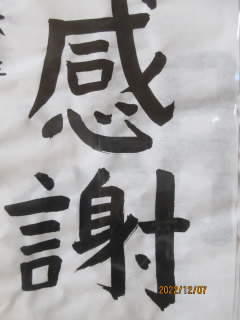 感謝
2022/12/07